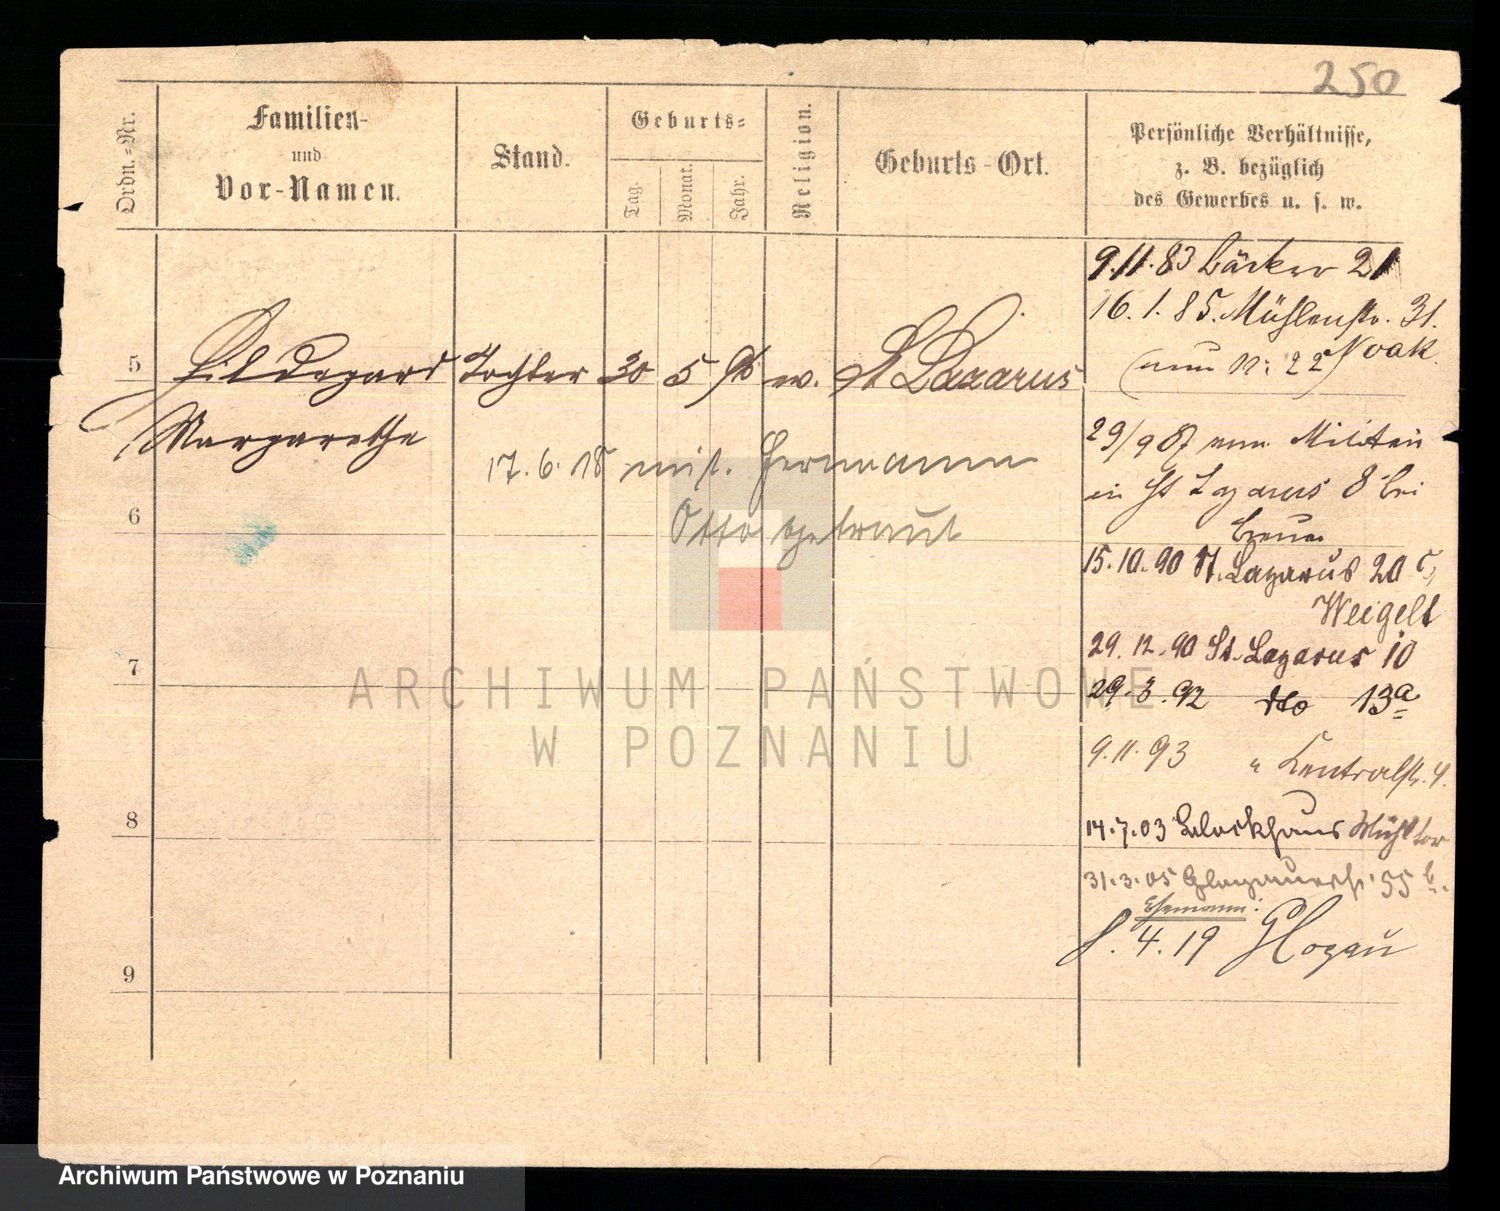 250
Ordn.-Nr.
Familien-
und
Vor-Namen.
Stand.
Geburts-
Tag.
Monat.
Jahr.
Religion.
Geburts-Ort.
Persönliche Verhältnisse,
z. B. bezüglich
des Gewerbes u. s. w.
9.11.83 Bäcker 21
16.1.85. Mühlenstr. 31.
(nun N: 22) Noak
5 Hildegard Tochter 30 5 ev. St Lazarus
Margarethe
17.6.18 mit Hermann
Otto getraut
29/9 87 vom Militair
in St Lazarus 8 bei
6
15.10.90 St. Lazarus 20
Weigelt
29.12.90 St. Lazarus 10
7
29.3.92 do 13a
9.11.93 " Centralstr. 4.
8
14.7.03 Blockhaus Mühltor
31.3.05 Glogauerstr. 55 b.
Ehemann:
8.4.19 Glogau
9
ARCHIWUM PAŃSTWOWE
W POZNANIU
Archiwum Państwowe w Poznaniu